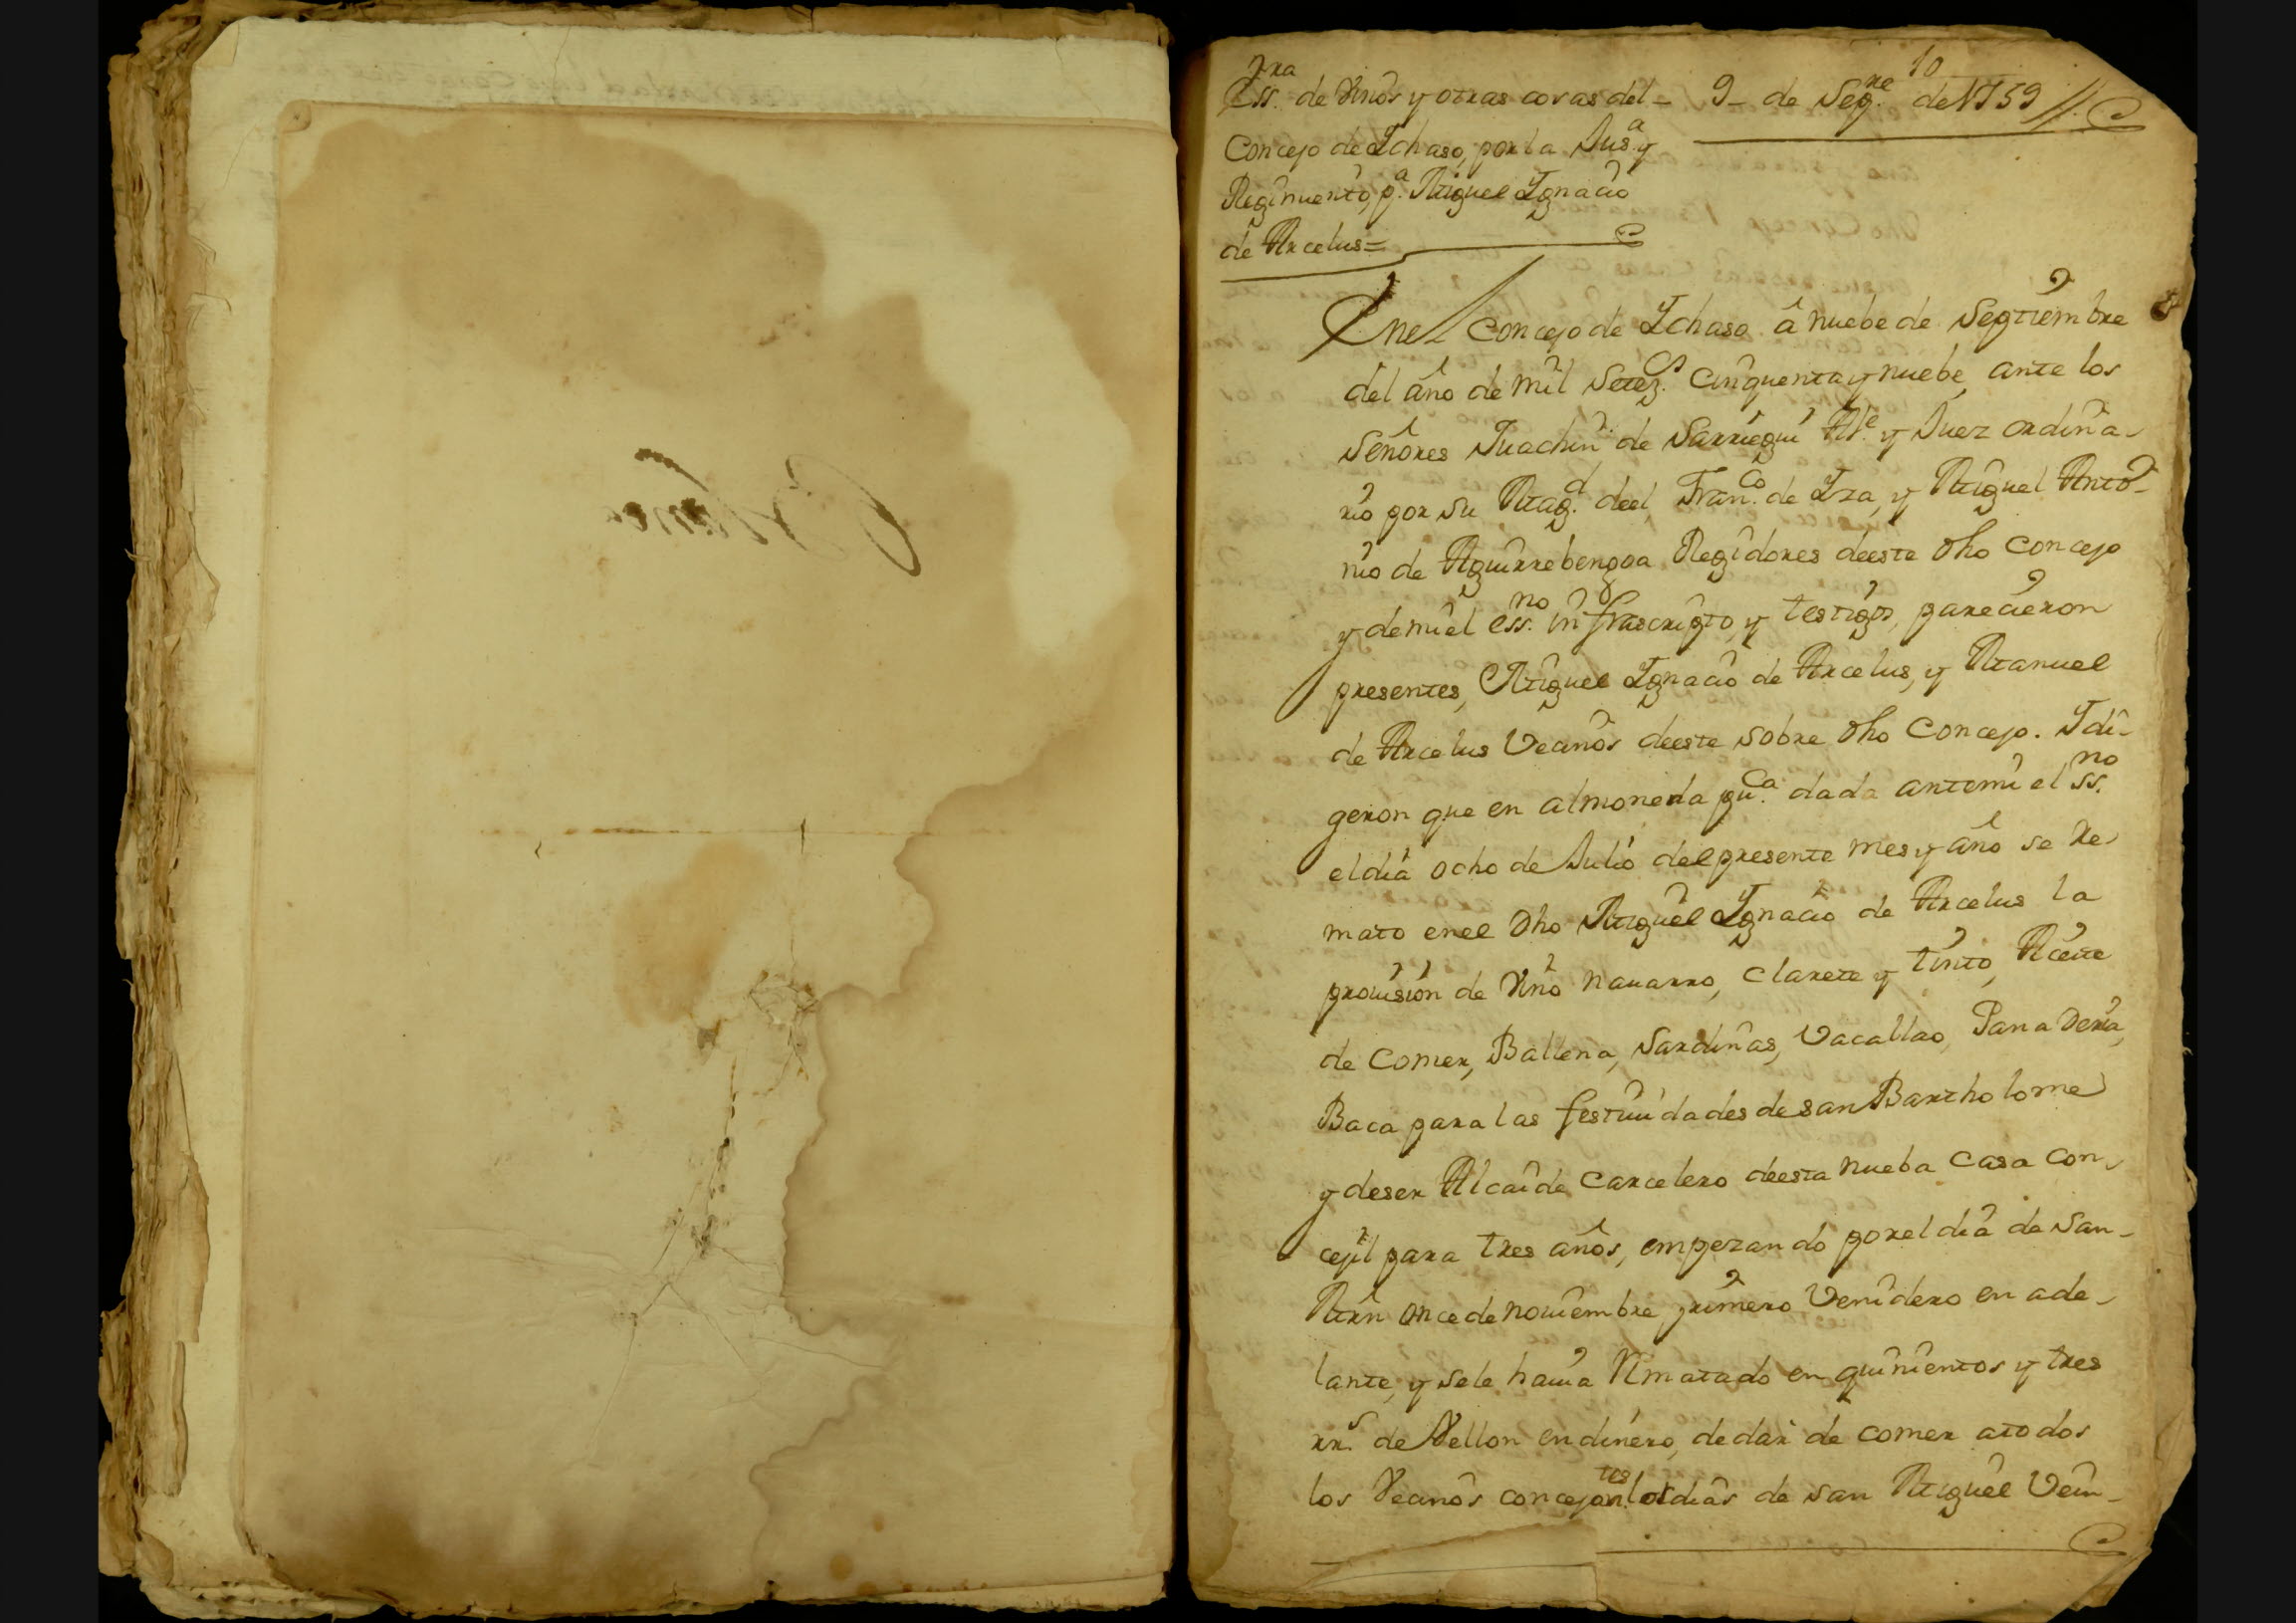 10
Ess.ra de Vinos y otras cosas del_ 9_ de Sep.re de 1759 //.
Concejo de Ychaso, por la Jus.a y
Regimiento, p.a Miguel Ygnacio
de Arcelus=
Enel Concejo de Ychaso â nuebe de Septiembre
del año de mil Setez.s cinquenta y nuebe, ante los
Señores Juachin de Sarriegui Al.e y Juez ordina-
rio por su Mag.d deel, Fran.co de Yza, y Miguel Anto-
nio de Aguirrebengoa Regidores deeste dho concejo
y demi el ess.no infrascripto, y testigos, parecieron
presentes, Miguel Ygnacio de Arcelus, y Manuel
de Arcelus Vecinos deeste sobre dho Concejo. Y di-
geron que en almoneda pu.ca dada antemi el ss.no
eldia ocho de Julio del presente mes y año se re-
mato enel dho Miguel Ygnacio de Arcelus la
prouision de Vino nauarro, clarete y tinto, Aceite
de comer, Ballena, Sardinas, Vacallao, Panaderia,
Baca para las festiuidades de san Bartholome
y deser Alcaide carcelero deesta nueba casa con-
cejil para tres años, empezando porel dia de San-
Mrn once de nouiembre, primero Venidero en ade-
lante, y sele hauia Rmatado en quinientos y tres
rr.s de Vellon endinero, dedar de comer atodos
los Vecinos concejan.tes los dias de san Miguel Vein-